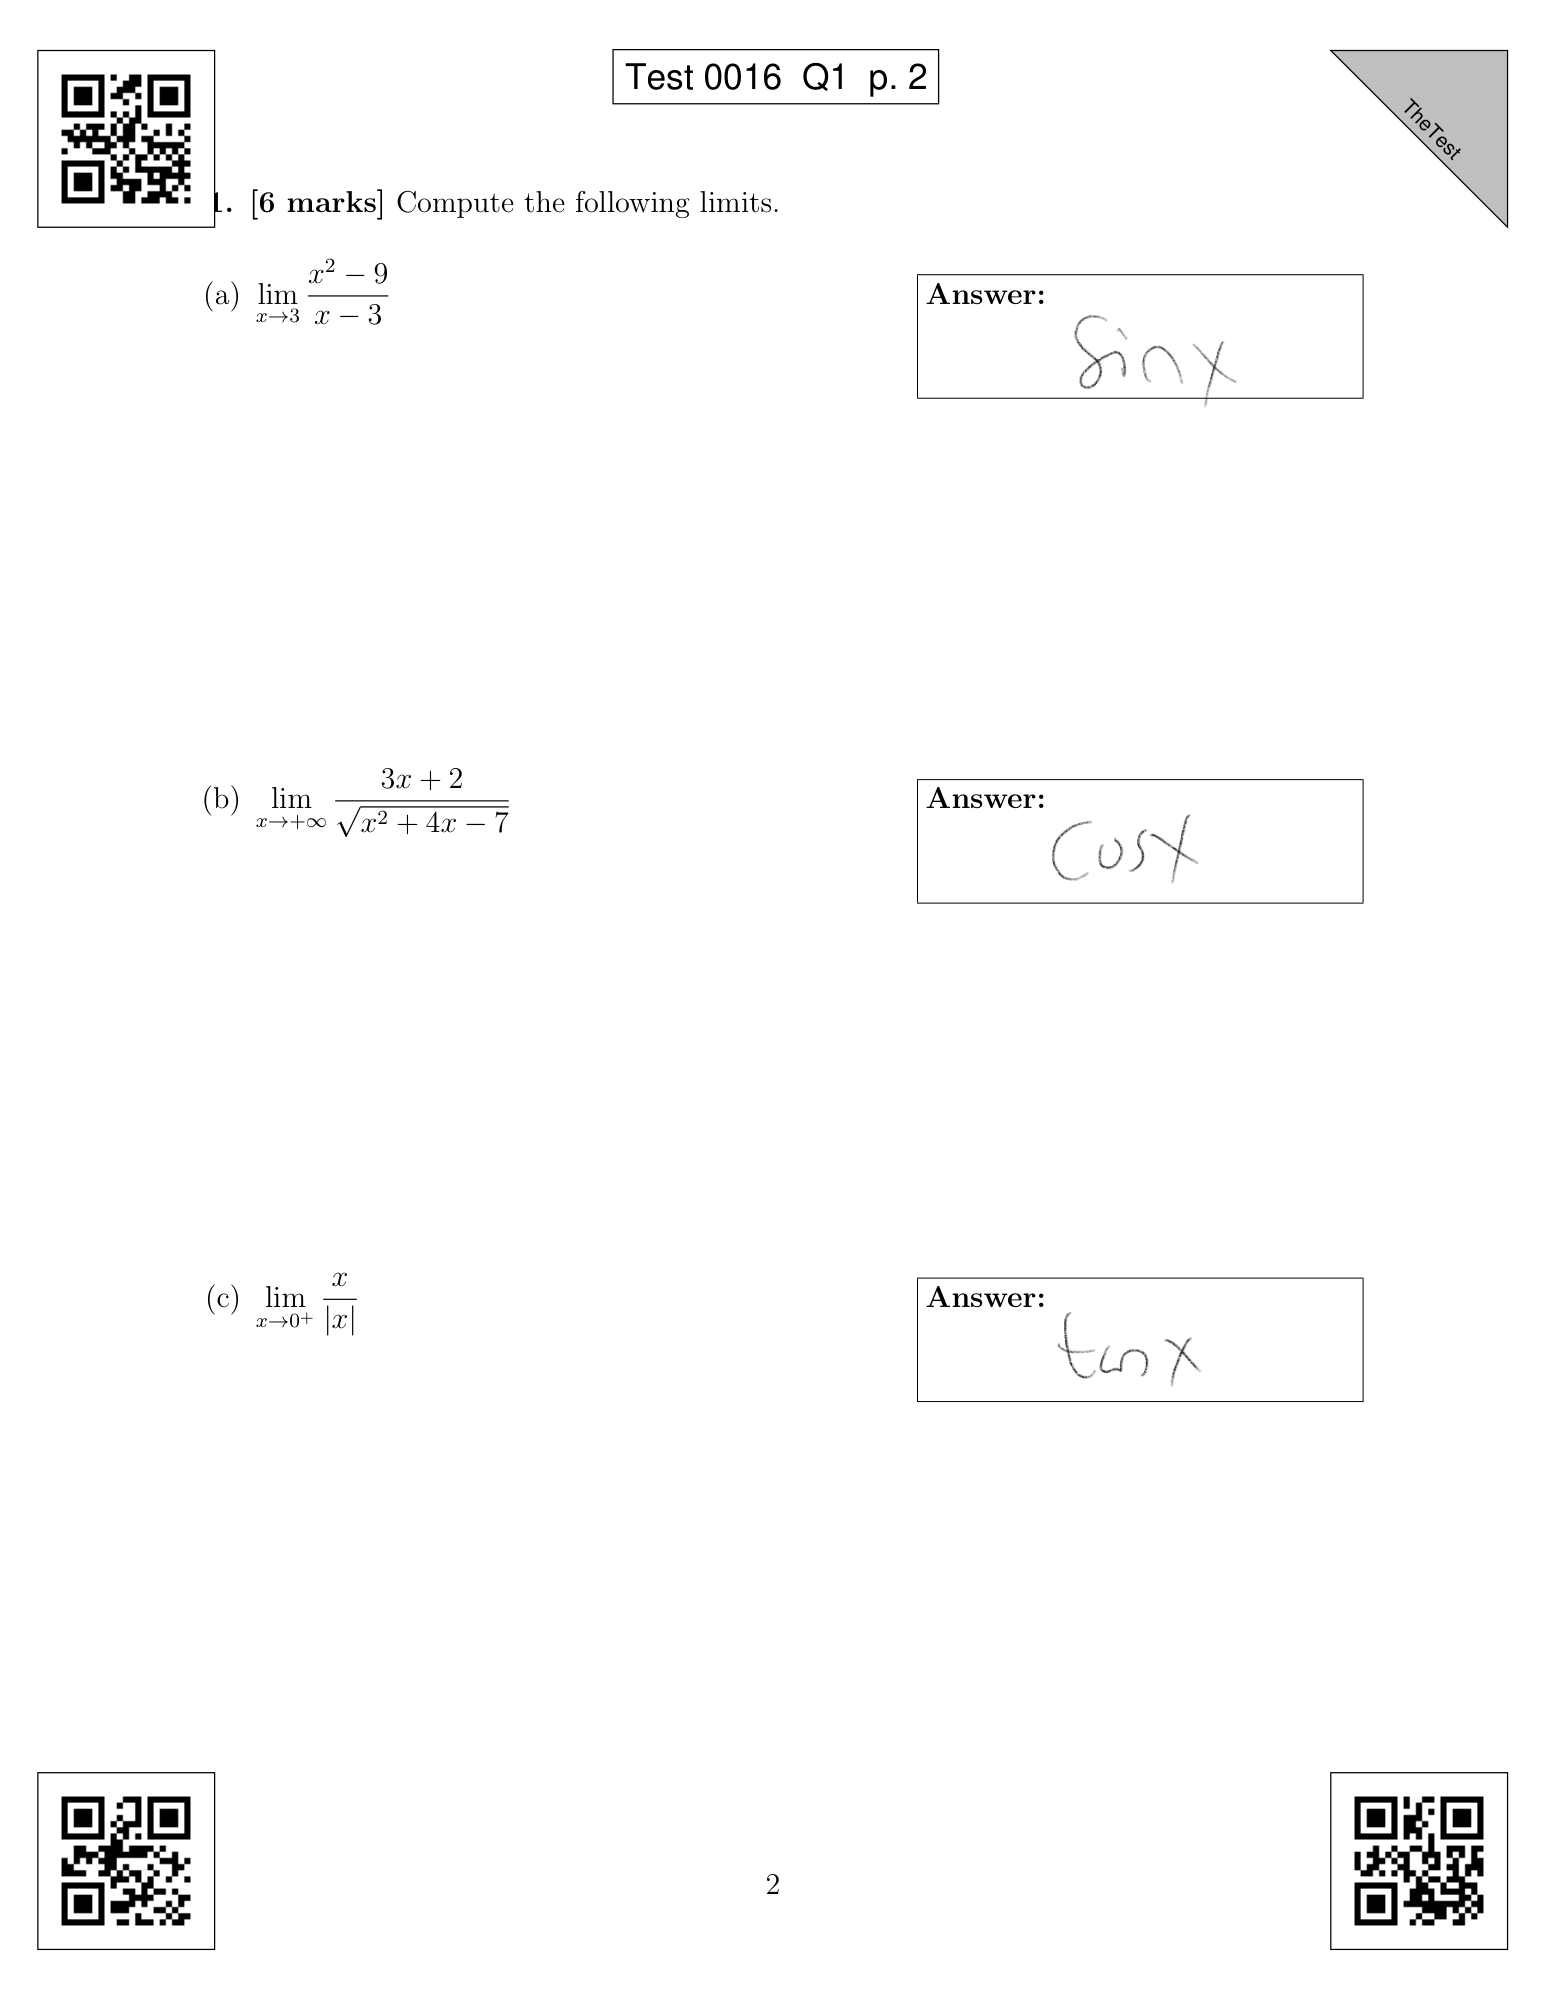 Test 0016 Q1 p. 2
TheTest
1. [6 marks] Compute the following limits.
(a) lim x→3 (x² − 9)/(x − 3)
Answer:
sin x
(b) lim x→+∞ (3x + 2)/√(x² + 4x − 7)
Answer:
cos x
(c) lim x→0⁺ x/|x|
Answer:
tan x
2